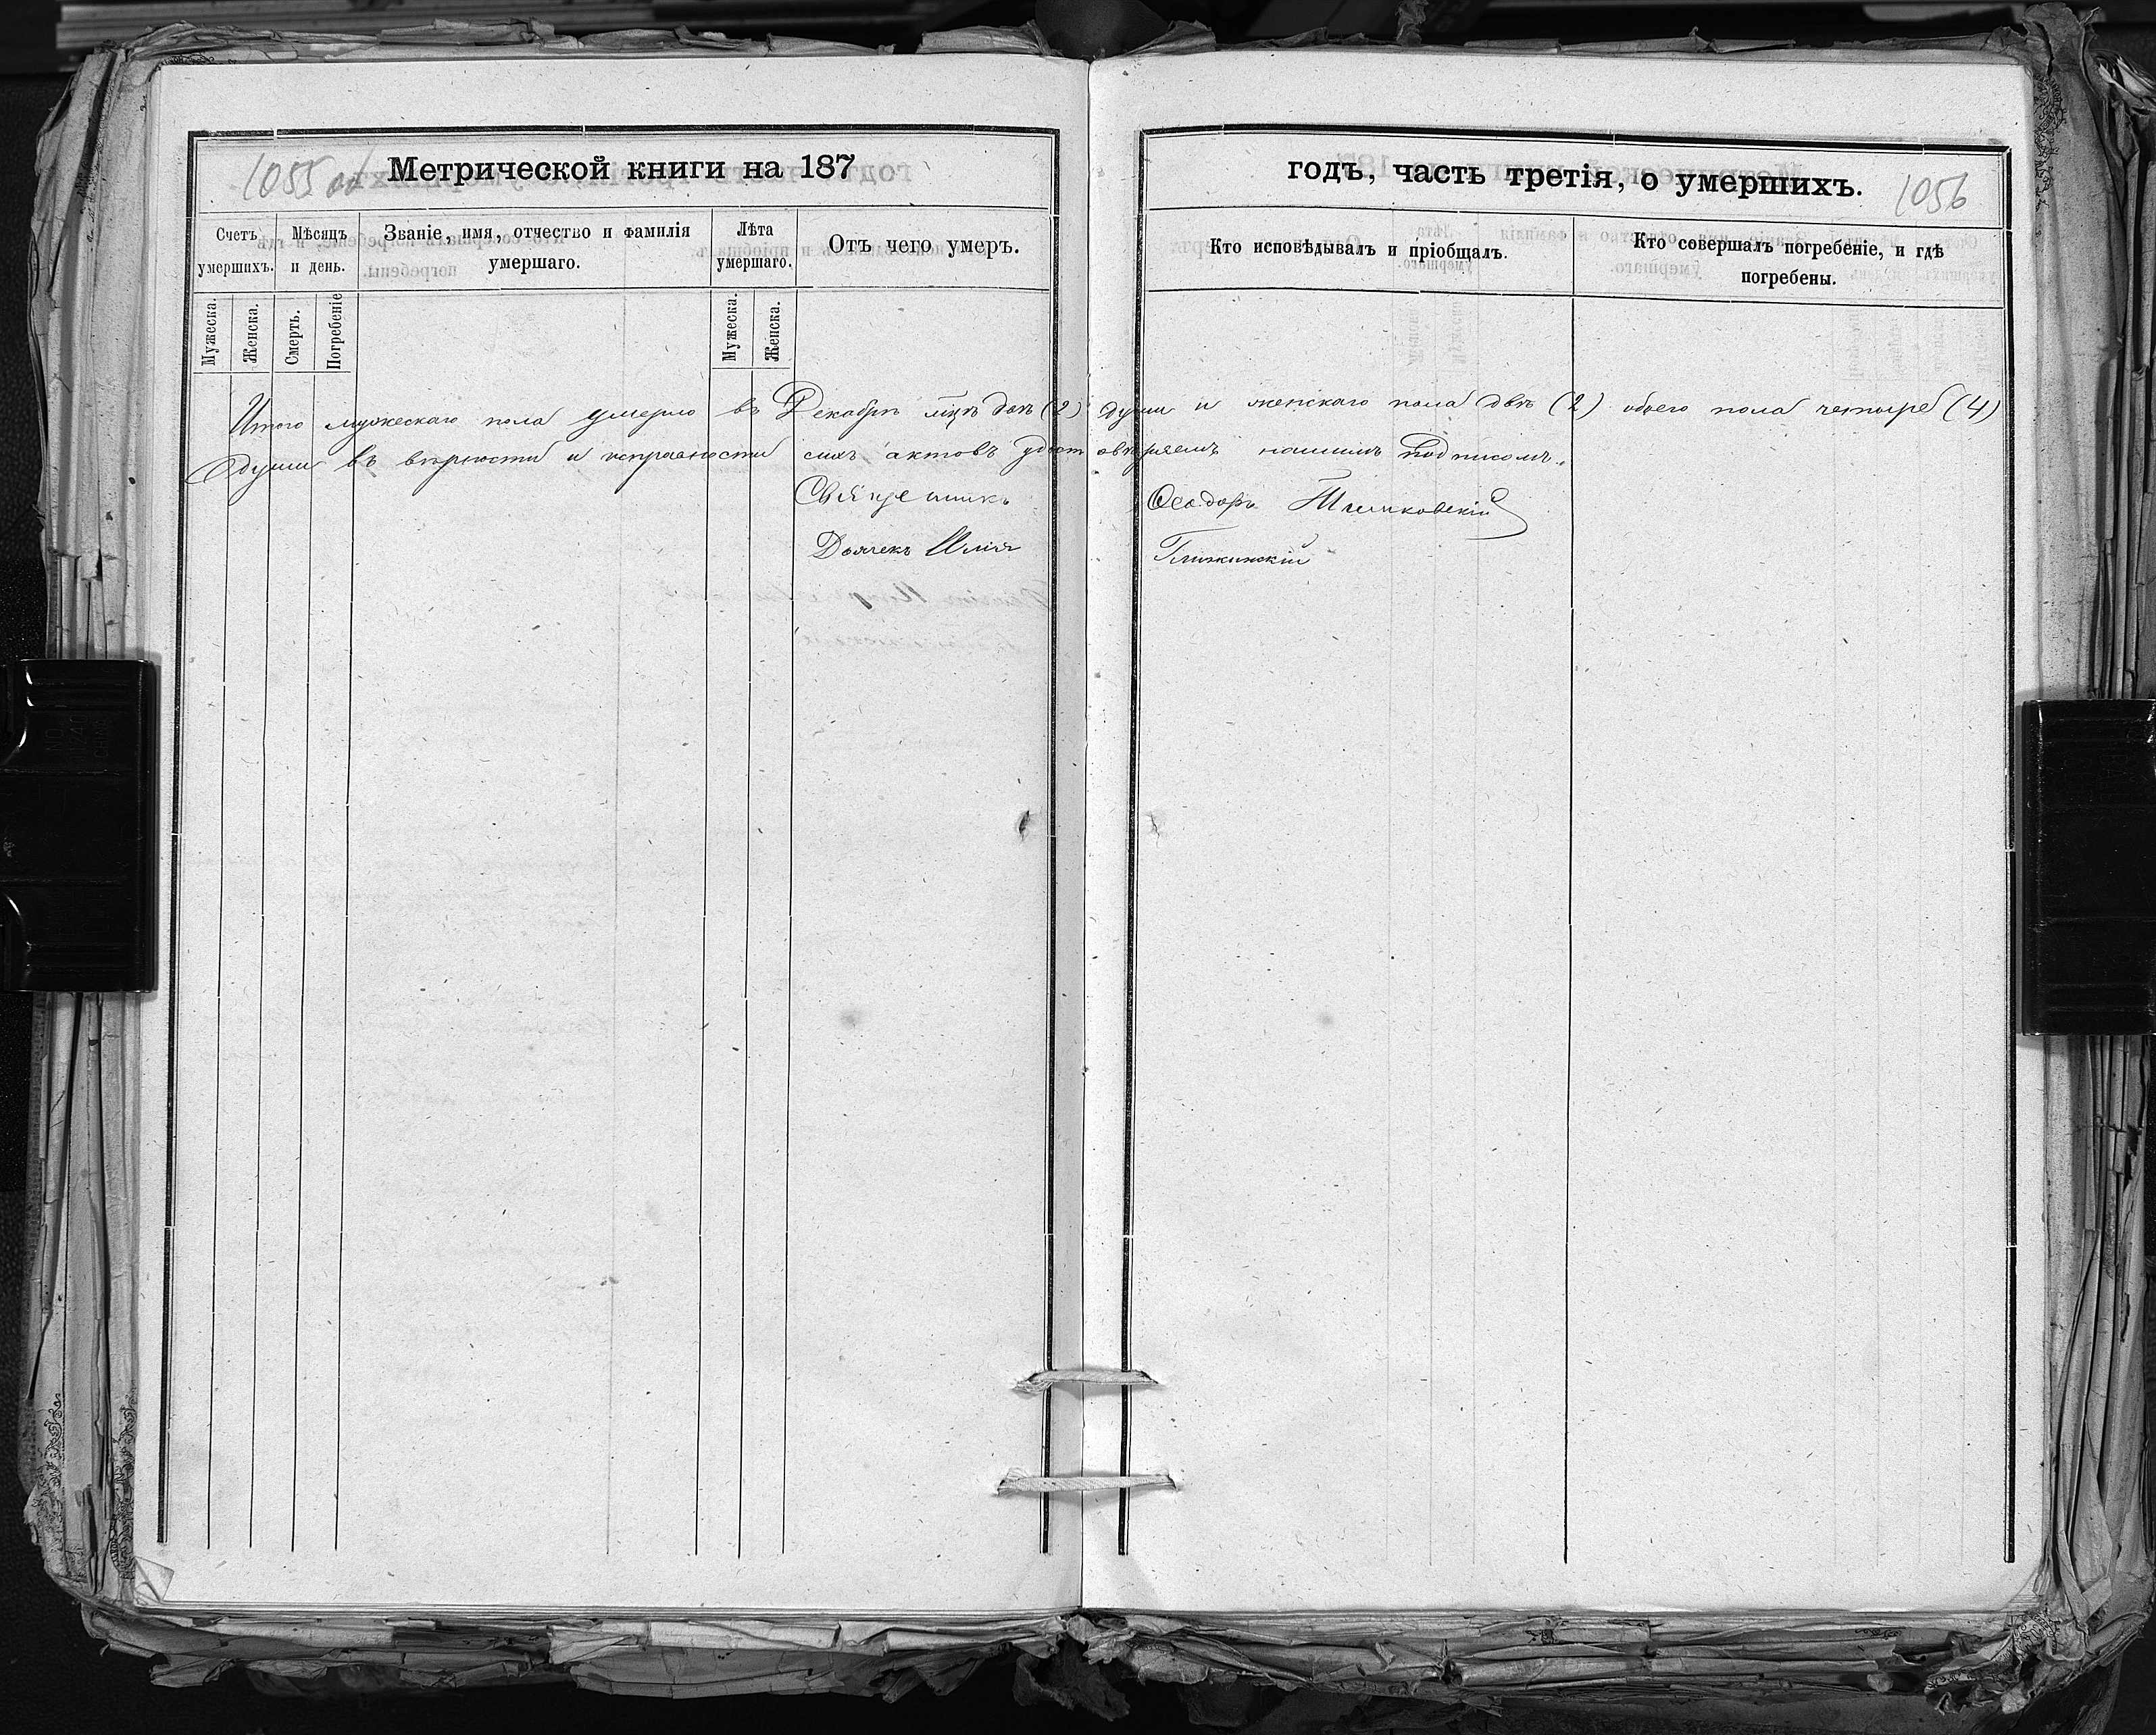 1055 об
Метрической книги на 187
годъ, часть третія, о умершихъ.
1056
Счетъ умершихъ.
Мѣсяцъ и день.
Званіе, имя, отчество и фамилія умершаго.
Лѣта умершаго.
Отъ чего умеръ.
Кто исповѣдывалъ и пріобщалъ.
Кто совершалъ погребеніе, и гдѣ погребены.
Мужеска.
Женска.
Смерть.
Погребеніе
Мужеска.
Женска.
Итого мужескаго пола умерло въ Декабрѣ двѣ (2) души и женскаго пола двѣ (2) обоего пола четыре (4)
души въ вѣрности и исправности сихъ актовъ удостовѣряемъ нашимъ подписомъ.
Священникъ Ѳеодоръ
Дьячекъ Илія